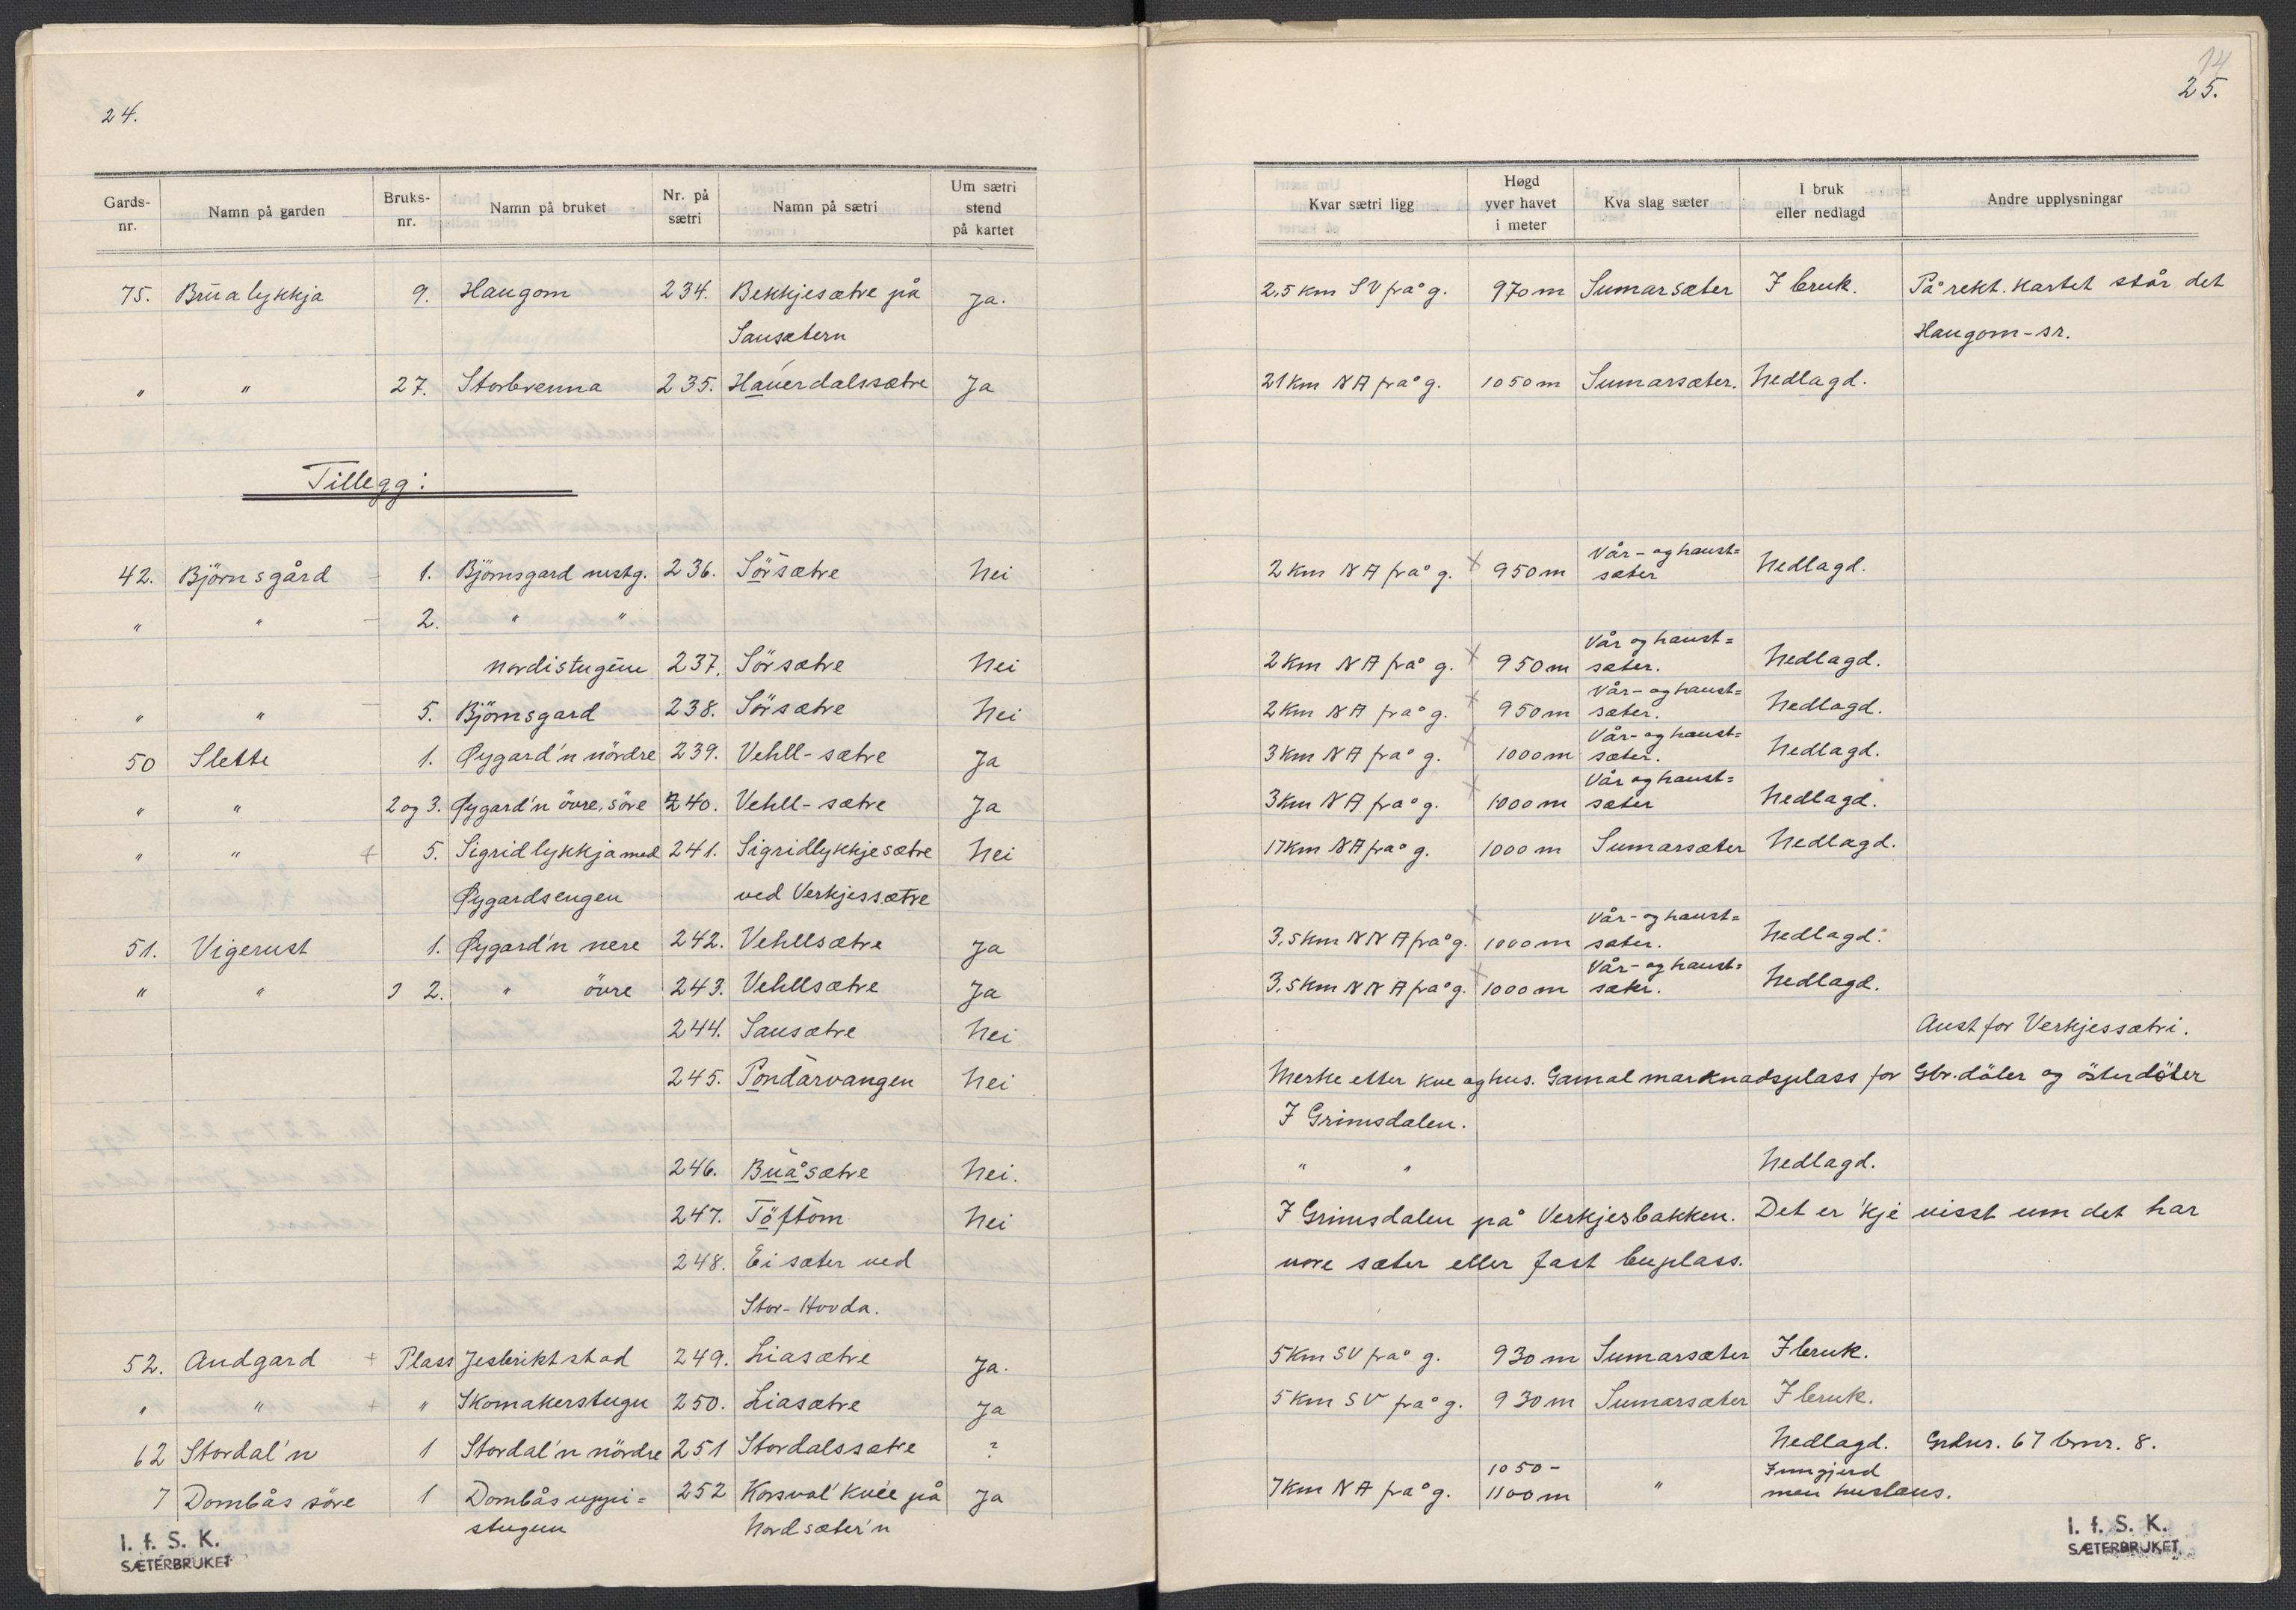 24.
Gards-nr. Namn på garden Bruks-nr. Namn på bruket Nr. på sætri Namn på sætri Um sætri stend på kartet
75. Brūalykkja 9. Haugom 234. Bekkjesætre på Ja.
Sausætern
" " 27. Storbrenna 235. Hauerdalssætre Ja
Tillegg:
42. Björnsgård - 1. Björnsgard nestg. 236. Sörsætre Nei
" " - 2. " "
nordistugūn 237. Sörsætre Nei
" " - 5. Björnsgard 238. Sörsætre Nei
50 Slette 1. Øygard'n nördre 239. Vehll-sætre Ja
" " 2 og 3. Øygard'n övre, söre 240. Vehll-sætre Ja
" " + 5. Sigridlykkja med 241. Sigridlykkjesætre Nei
Øygardsengen ved Verkjessætre
51. Vigerust 1. Øygard'n nere 242. Vehllsætre Ja
" " 2. " övre 243. Vehllsætre Ja
244. Sausætre Nei
245. Pondārvangen Nei
246. Būåsætre Nei.
247. Töftom Nei
248. Ei sæter ved
Stor-Hovda.
52. Andgard + Plass Jesbriktstad 249. Liasætre Ja.
" " + " Skomakerstugu 250. Liasætre Ja
62 Stordal'n 1 Stordal'n nördre 251 Stordalssætre ?
7 Dombås söre 1 Dombås uppi= 252 Korsval'kvee på Ja
stugun Nordsæter'n
I. f. S. K.
SÆTERBRUKET
14
25.
Kvar sætri ligg Høgd yver havet i meter Kva slag sæter I bruk eller nedlagd Andre upplysningar
2,5 km SV frå g. 970 m Sumarsæter I bruk. På rekt. kartet står det
Haugom-sr.
21 km NA frå g. 1050 m Sumarsæter. Nedlagd.
2 km NA frå g. x 950 m Vår- og haust=sæter Nedlagd.
2 km NA frå g. x 950 m Vår og haust=sæter. Nedlagd.
2 km NA frå g. x 950 m Vår- og haust=sæter. Nedlagd.
3 km NA frå g. x 1000 m Vår- og haust=sæter. Nedlagd.
3 km NA frå g. x 1000 m Vår og haust=sæter Nedlagd.
17 km NA frå g. 1000 m Sumarsæter Nedlagd.
3,5 km NNA frå g. x 1000 m Vår- og haust=sæter. Nedlagd.
3,5 km NNA frå g. x 1000 m Vår- og haust=sæter. Nedlagd.
Aust for Verkjessætri.
Merke etter kve og hus. Gamal marknadsplass for Gbr.döler og österdöler
I Grimsdalen.
" " Nedlagd.
I Grimsdalen på Verkjesbakken. Det er 'kje visst um det har
vore sæter eller fast buplass.
5 km SV frå g. 930 m Sumarsæter I bruk.
5 km SV frå g. 930 m Sumarsæter I bruk.
Nedlagd. Grdnr. 67 brnr. 8.
7 km NA frå g. 1050-1100 m " Inngjerd men huslaus.
I. f. S. K.
SÆTERBRUKET